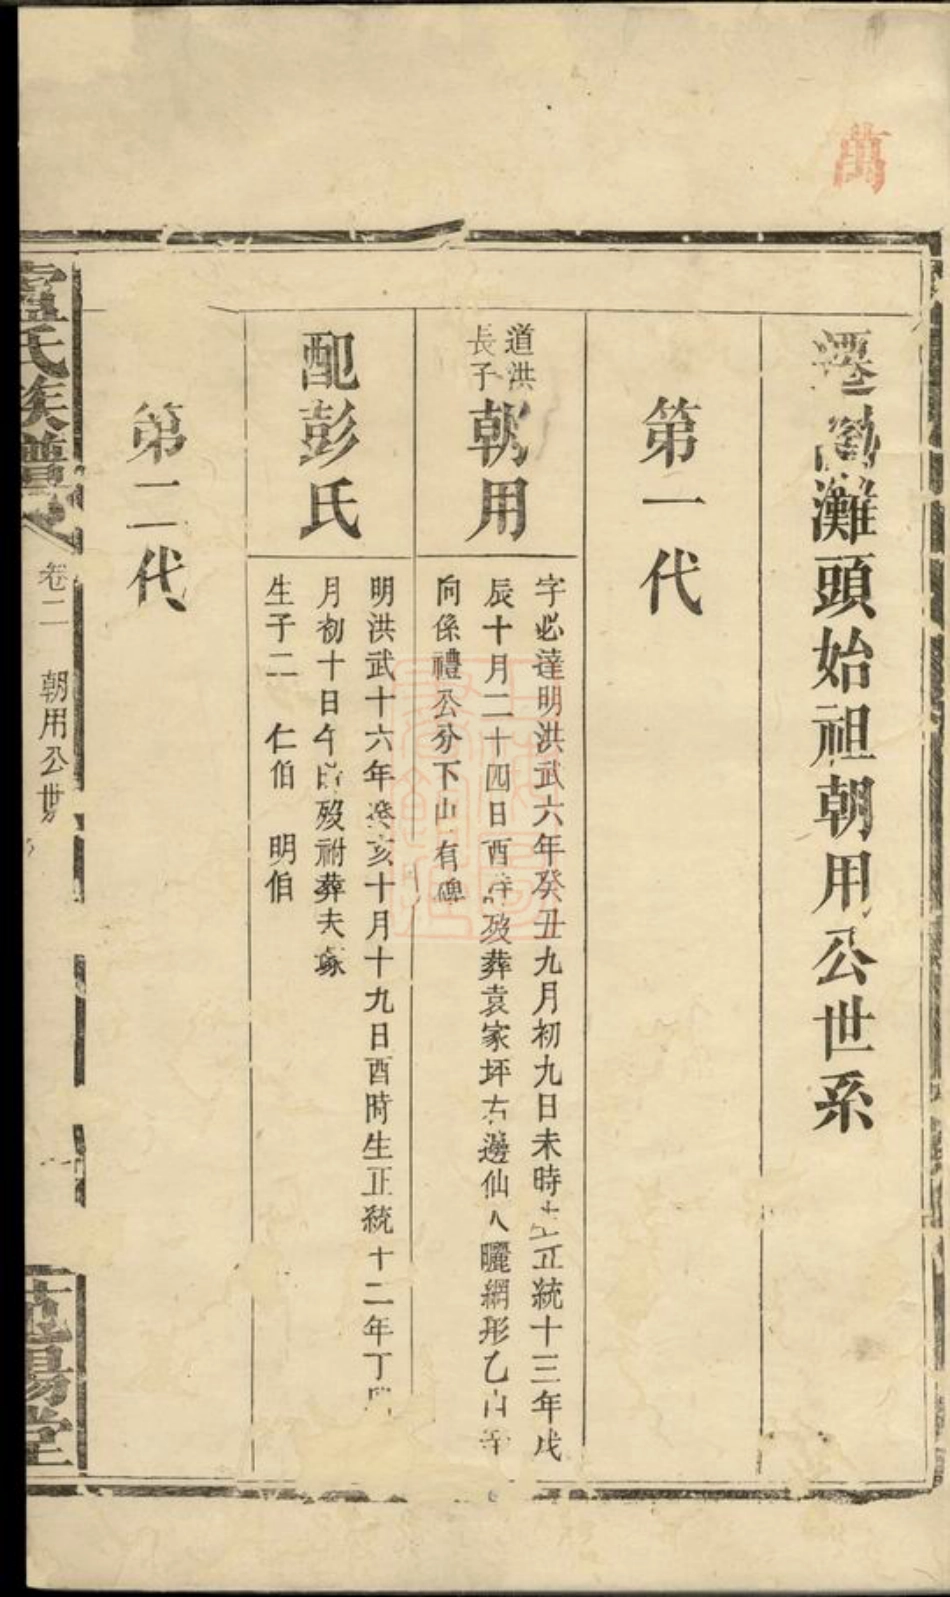 萬
遷 灘頭始祖朝用公世系
第一代
道洪
長子
朝用
字必達明洪武六年癸丑九月初九日未時生正統十三年戊
辰十月二十四日酉時歿葬袁家坪右邊仙人曬網形乙山辛
向係禮公分下山有碑
配彭氏
明洪武十六年癸亥十月十九日酉時生正統十二年丁
月初十日午時歿祔葬夫塚
生子二 仁伯 明伯
第二代
氏族譜
卷二 朝用公世
一
陽堂